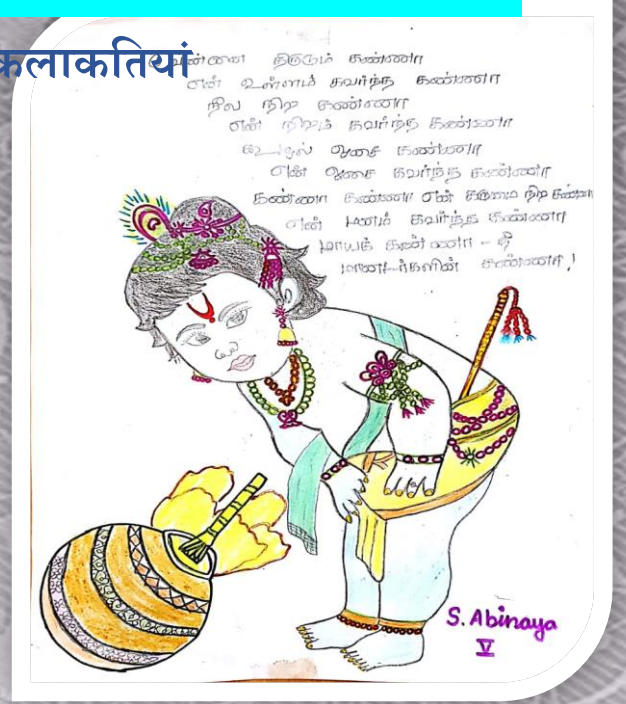 कलाकतियां
வெண்ணை திருடும் கண்ணா
என் உள்ளம் கவர்ந்த கண்ணா
நீல நிற கண்ணா
என் நிறம் கவர்ந்த கண்ணா
ஆசை கண்ணா
என் ஆசை கவர்ந்த கண்ணா
கண்ணா கண்ணா என் கருமை நிற கண்ணா
என் மனம் கவர்ந்த கண்ணா
மாயக் கண்ணா - நீ
கண்ணா!
S. Abinaya
V